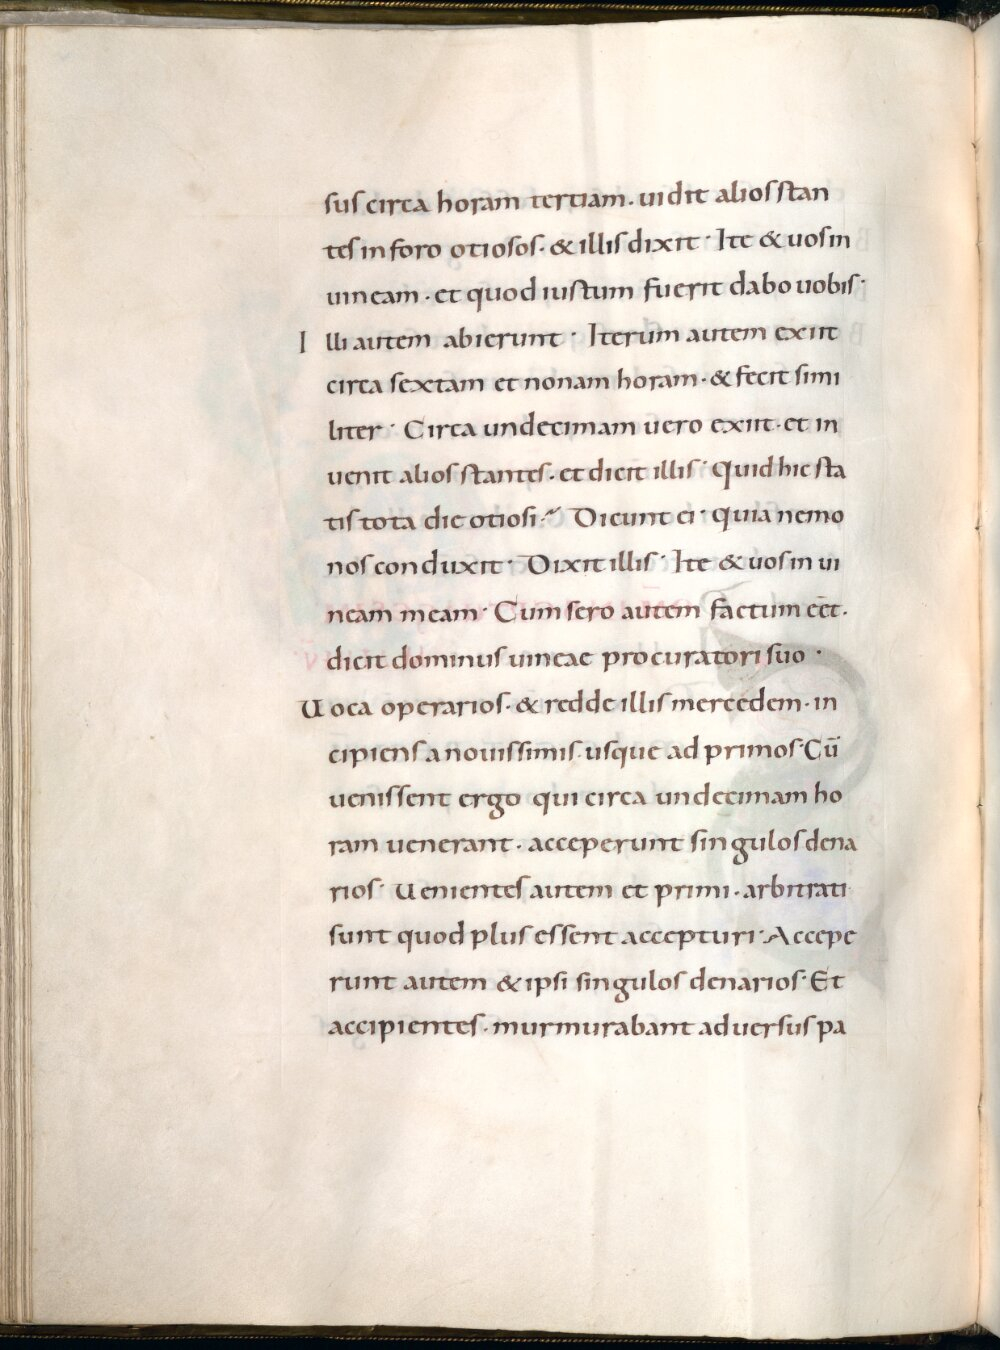 sus circa horam tertiam. uidit alios stan
tes in foro otiosos. & illis dixit. Ite & uos in
uineam. et quod iustum fuerit dabo uobis.
Illi autem abierunt. Iterum autem exiit
circa sextam et nonam horam. & fecit simi
liter. Circa undecimam uero exiit. et in
uenit alios stantes. et dicit illis. Quid hic sta
tis tota die otiosi? Dicunt ei. quia nemo
nos conduxit. Dixit illis. Ite & uos in ui
neam meam. Cum sero autem factum eēt.
dicit dominus uineae procuratori suo.
Uoca operarios. & redde illis mercedem. in
cipiens a nouissimis usque ad primos. Cū
uenissent ergo qui circa undecimam ho
ram uenerant. acceperunt singulos dena
rios. Uenientes autem et primi. arbitrati
sunt quod plus essent accepturi. Accepe
runt autem & ipsi singulos denarios. Et
accipientes. murmurabant aduersus pa